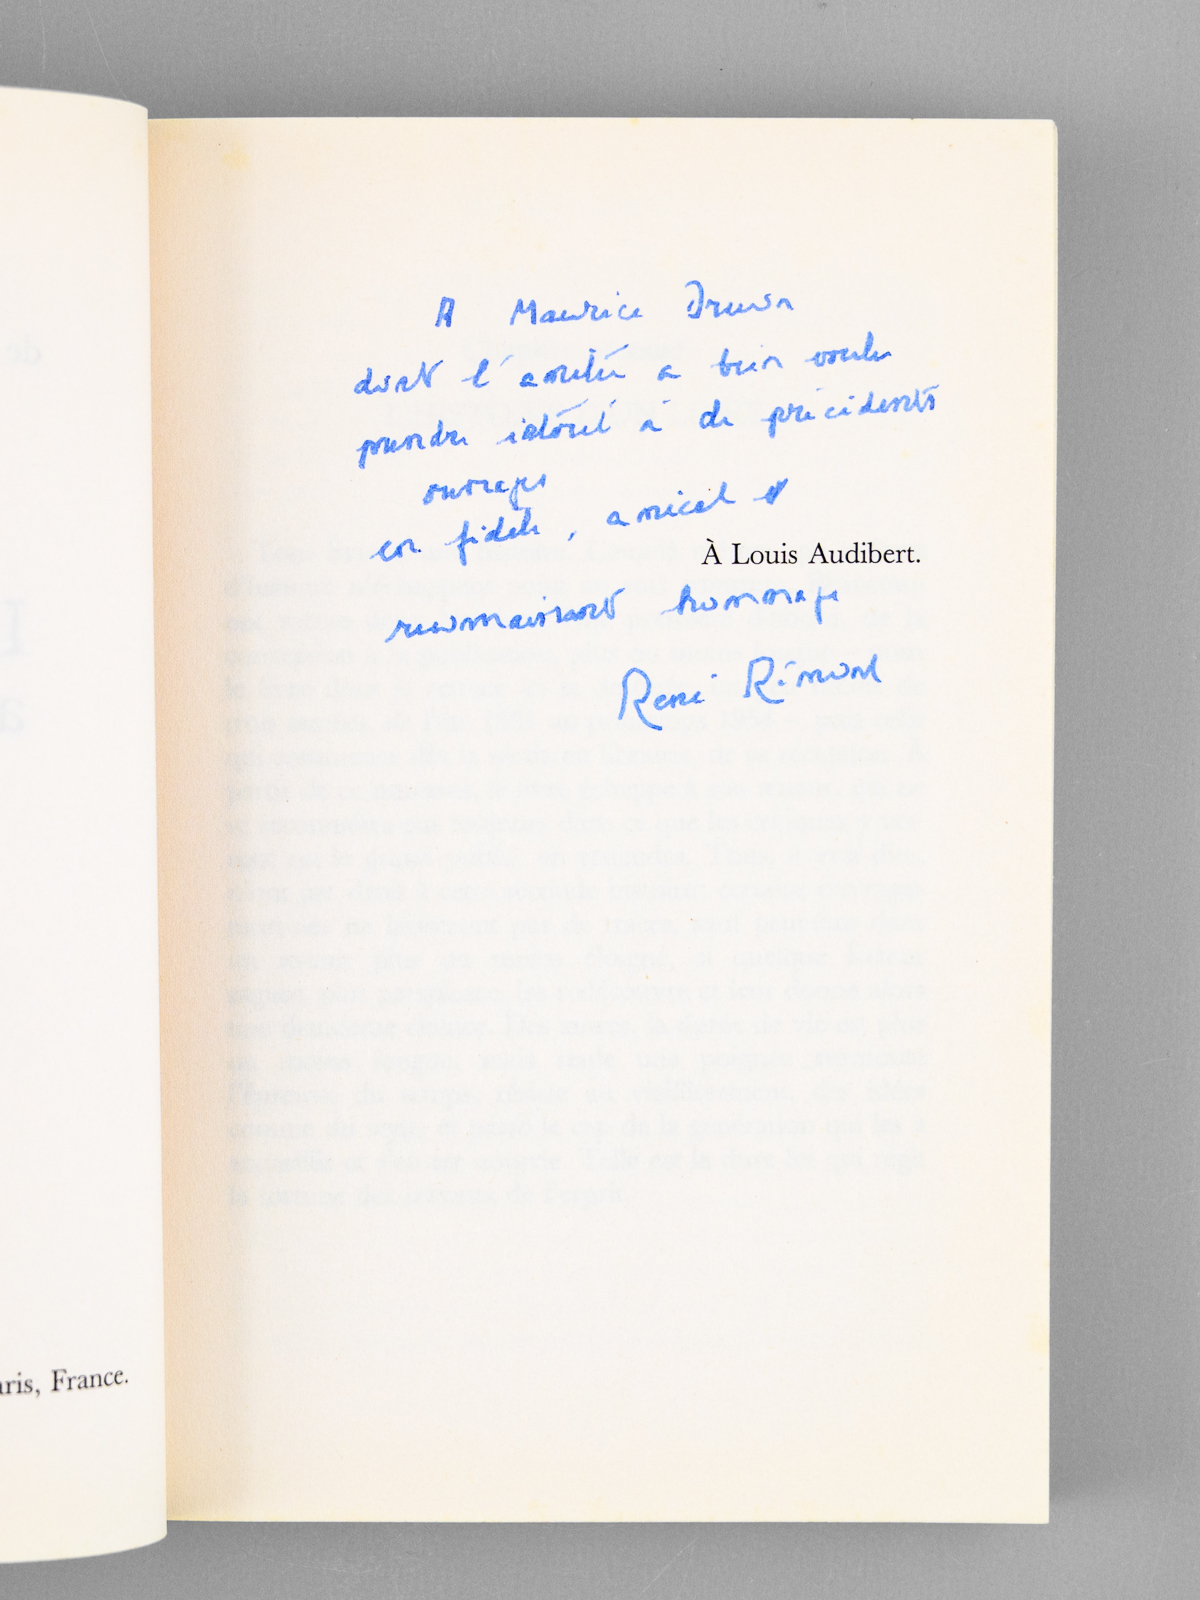 A Maurice Druon
dont l'amitié a bien voulu
prendre intérêt à de précédents
ouvrages
en fidèle, amical et
À Louis Audibert.
reconnaissant hommage
René Rémond
aris, France.